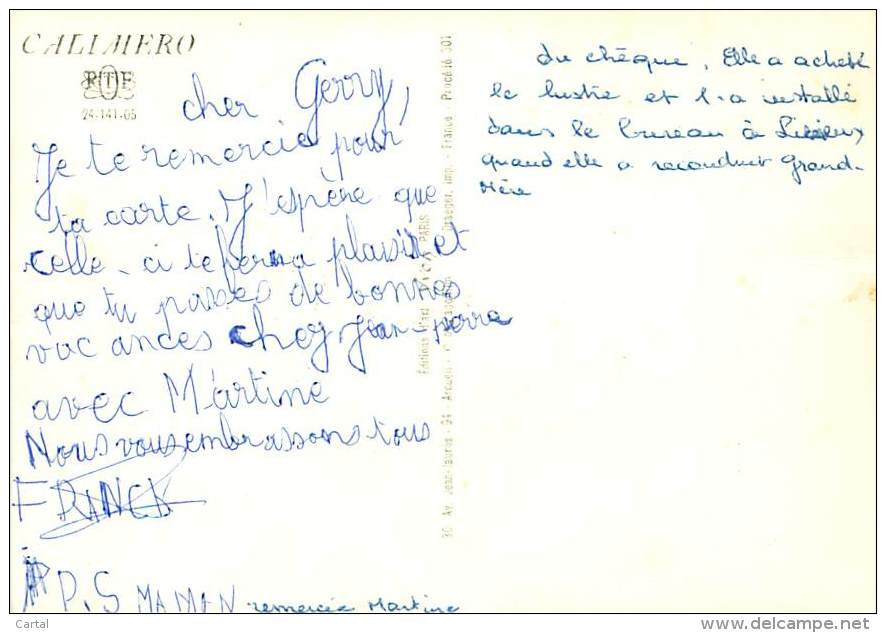 CALIMERO
24-141-05
cher Gerry,
Je te remercie pour
ta carte. J'espère que
celle-ci te fera plaisir et
que tu passes de bonnes
vacances chez Jean-pierre
avec Martine
Nous vous embrassons tous
FRANCK
P.S MAMAN remercie Martine
du chèque. Elle a acheté
le lustre et l'a installé
dans le bureau à Lisieux
quand elle a reconduit Grand-
Mère
PARIS
Draeger, imp. - France Procédé 301
30 Av. Jean-Jaurès - 94 Arcueil
Cartal
www.delcampe.net